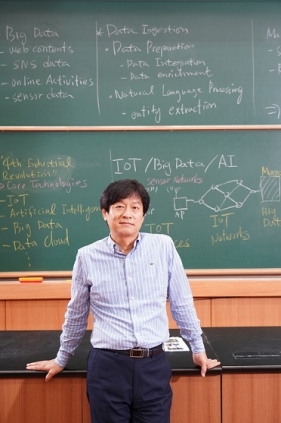 Big Data
- web contents
- SNS data
- online Activities
- sensor data
* Data Ingestion
• Data Preparation
- Data Integration
- Data enrichment
• Natural Language Processing
- entity extraction
"4th Industrial
Revolution"
Core Technologies
- IoT
- Artificial Intelligen
- Big Data
- Data Cloud
IOT/Big Data/AI
sensor Networks
AP
IoT
Networks
IoT
Big
Dat